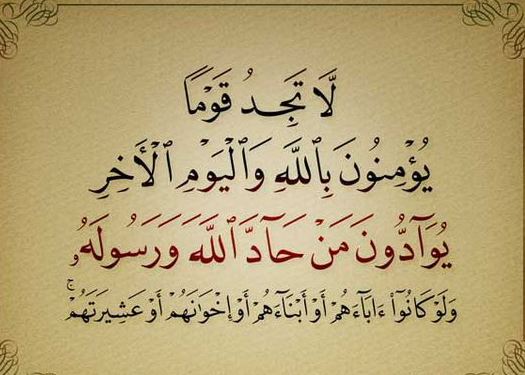 لَّا تَجِدُ قَوْمًا
يُؤْمِنُونَ بِٱللَّهِ وَٱلْيَوْمِ ٱلْأَخِرِ
يُوَآدُّونَ مَنْ حَآدَّ ٱللَّهَ وَرَسُولَهُۥ
وَلَوْ كَانُوٓا۟ ءَابَآءَهُمْ أَوْ أَبْنَآءَهُمْ أَوْ إِخْوَٰنَهُمْ أَوْ عَشِيرَتَهُمْ ۚ